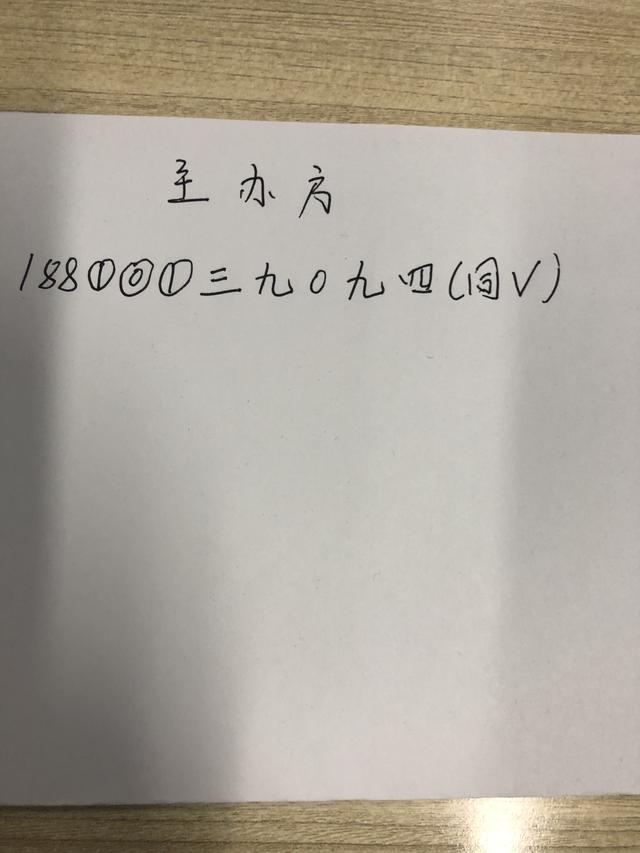 主办方
188①⓪①三九0九四(同V)